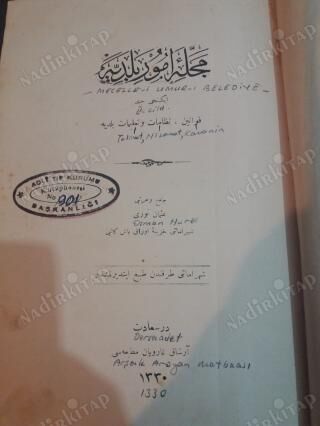 مجلهٔ امور بلدیه
- MECELLE-İ UMUR-İ BELEDİYE -
ایکنجی جلد
2. cild.
قوانین ، نظامات و تعلیمات بلدیه
Talimat, Nizamat, Kavanin
ADLİ TIP KURUMU
Kütüphanesi
No 901
BAŞKANLIĞI
عثمان نوری
Osman Nuri
شهر امانتی طرفندن طبع ایتدیرلمشدر
در سعادت
Dersaadet
آرشاق غارویان مطبعه‌سی
Arşak Aroyan matbaası
١٣٣٠
1330
NADİRKİTAP